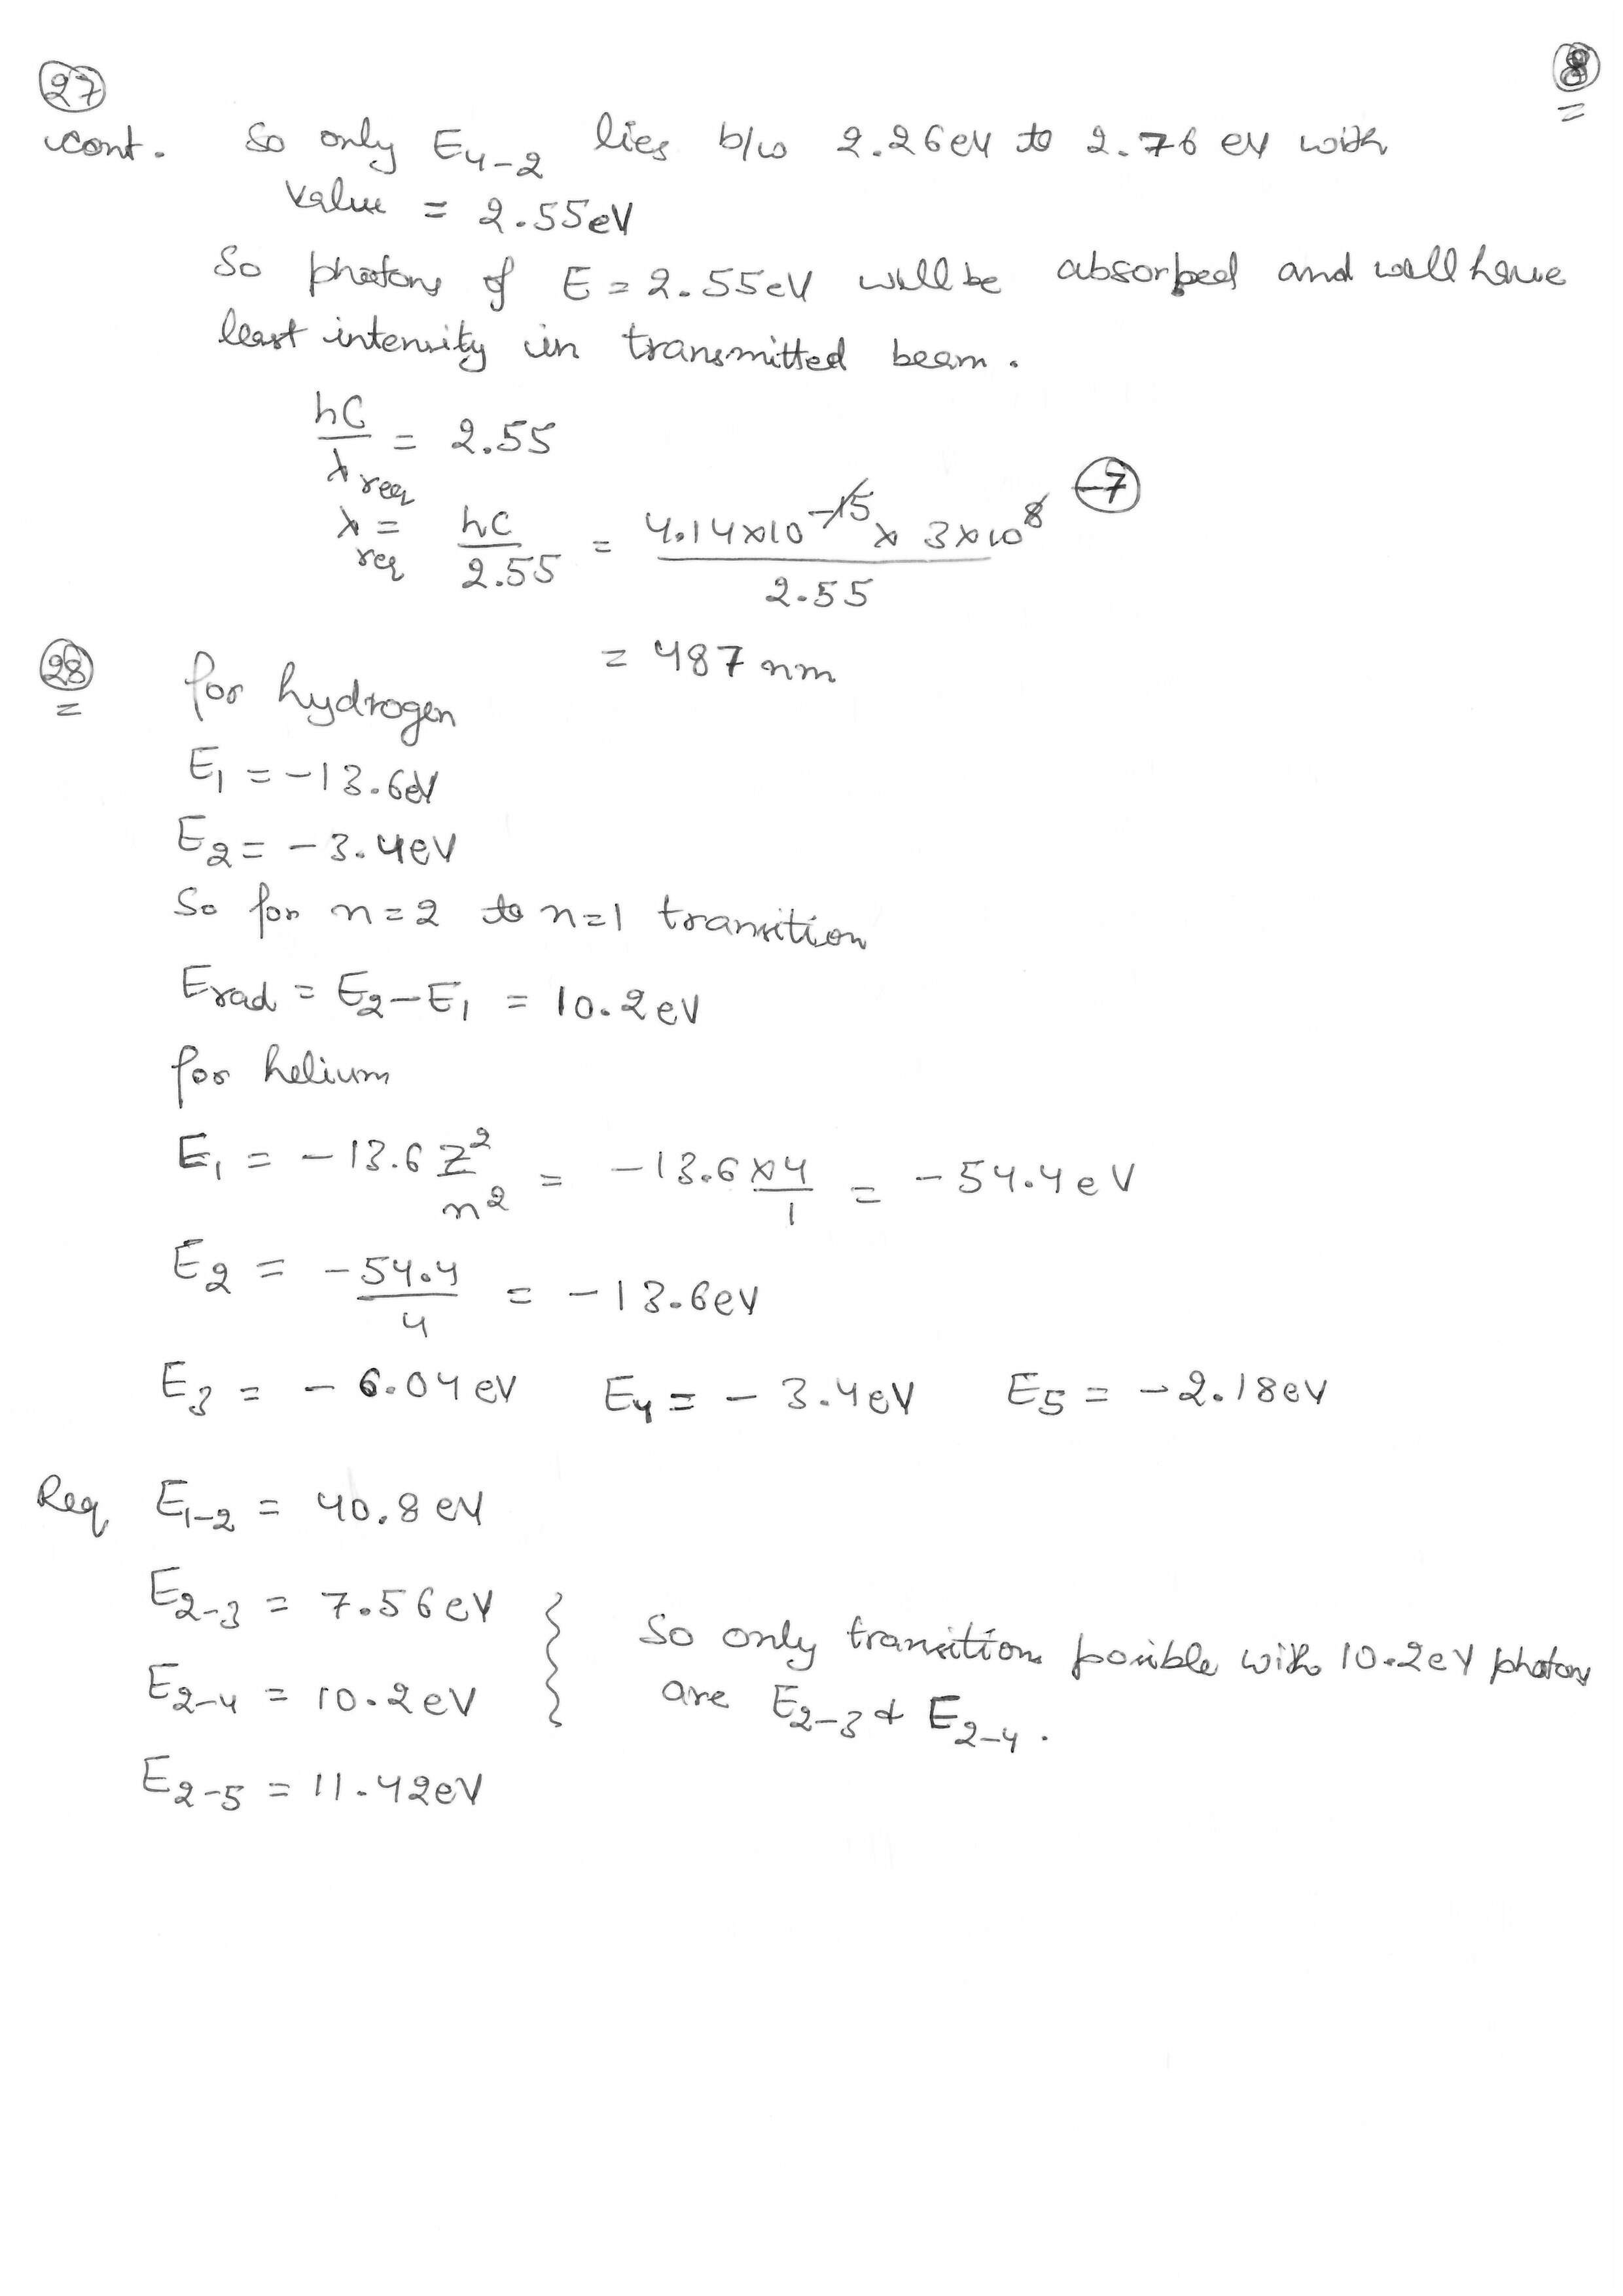 27
8
cont. So only E4-2 lies b/w 2.26eV to 2.76 eV with
value = 2.55eV
So photons of E = 2.55eV will be absorbed and will have
least intensity in transmitted beam.
hC/λreq = 2.55
λreq = hC/2.55 = 4.14x10^-15 x 3x10^8 / 2.55 -7
= 487 nm
28 for hydrogen
E1 = -13.6eV
E2 = -3.4eV
So for n=2 to n=1 transition
Erad = E2-E1 = 10.2eV
for helium
E1 = -13.6 Z^2/n^2 = -13.6x4/1 = -54.4eV
E2 = -54.4/4 = -13.6eV
E3 = -6.04eV E4 = -3.4eV E5 = -2.18eV
Req E1-2 = 40.8eV
E2-3 = 7.56eV
So only transition possible with 10.2eV photons
E2-4 = 10.2eV
are E2-3 & E2-4.
E2-5 = 11.42eV